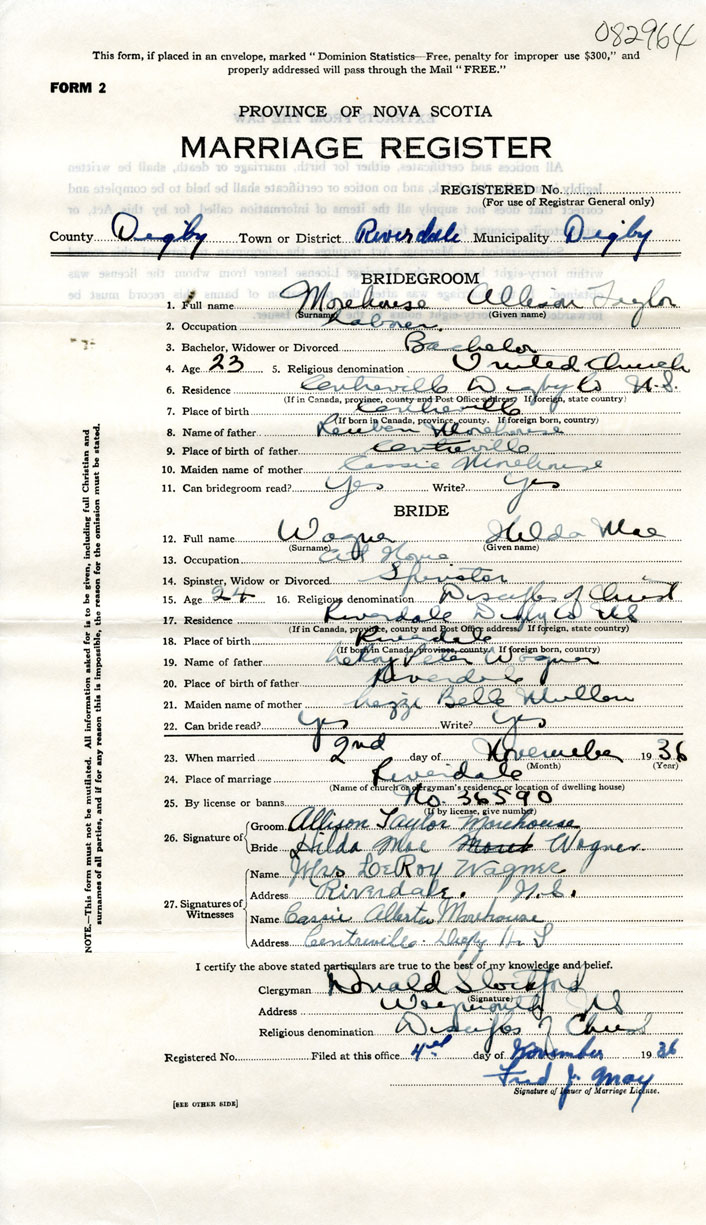 082964
This form, if placed in an envelope, marked "Dominion Statistics—Free, penalty for improper use $300," and
properly addressed will pass through the Mail "FREE."
FORM 2
PROVINCE OF NOVA SCOTIA
MARRIAGE REGISTER
REGISTERED No.
(For use of Registrar General only)
County Digby Town or District Riverdale Municipality Digby
BRIDEGROOM
1. Full name Morehouse Allison Taylor
(Surname) (Given name)
2. Occupation Laborer
3. Bachelor, Widower or Divorced Bachelor
4. Age 23 5. Religious denomination United Church
6. Residence Centreville Digby Co N.S.
(If in Canada, province, county and Post Office address. If foreign, state country)
7. Place of birth Centreville
(If born in Canada, province, county. If foreign born, country)
8. Name of father Reuben Morehouse
9. Place of birth of father Centreville
10. Maiden name of mother Cassie Morehouse
11. Can bridegroom read? Yes Write? Yes
BRIDE
12. Full name Wagner Hilda Mae
(Surname) (Given name)
13. Occupation At Home
14. Spinster, Widow or Divorced Spinster
15. Age 24 16. Religious denomination Disciples of Christ
17. Residence Riverdale Digby Co NS
(If in Canada, province, county and Post Office address. If foreign, state country)
18. Place of birth Riverdale
(If born in Canada, province, county. If foreign born, country)
19. Name of father LeRoy Peter Wagner
20. Place of birth of father Riverdale
21. Maiden name of mother Belle Mullen
22. Can bride read? Yes Write? Yes
23. When married 2nd day of November 1936
(Month) (Year)
24. Place of marriage Riverdale
(Name of church or clergyman's residence or location of dwelling house)
25. By license or banns No. 36590
(If by license, give number)
26. Signature of Groom Allison Taylor Morehouse
Bride Hilda Mae Wagner
27. Signatures of Witnesses
Name Mrs LeRoy Wagner
Address Riverdale. N.S.
Name Cassie Alberta Morehouse
Address Centreville Digby N S
I certify the above stated particulars are true to the best of my knowledge and belief.
Clergyman Donald
(Signature)
Address Weymouth NS
Religious denomination Disciples of Christ
Registered No. Filed at this office 4th day of November 1936
Fred J. May
Signature of Issuer of Marriage License.
[SEE OTHER SIDE]
NOTE.—This form must not be mutilated. All information asked for is to be given, including full Christian and
surnames of all parties, and if for any reason this is impossible, the reason for the omission must be stated.